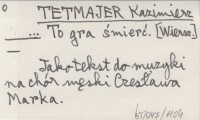 TETMAJER Kazimierz
... To gra śmierć. [Wiersz.]
Jako tekst do muzyki
na chór męski Czesława
Marka.